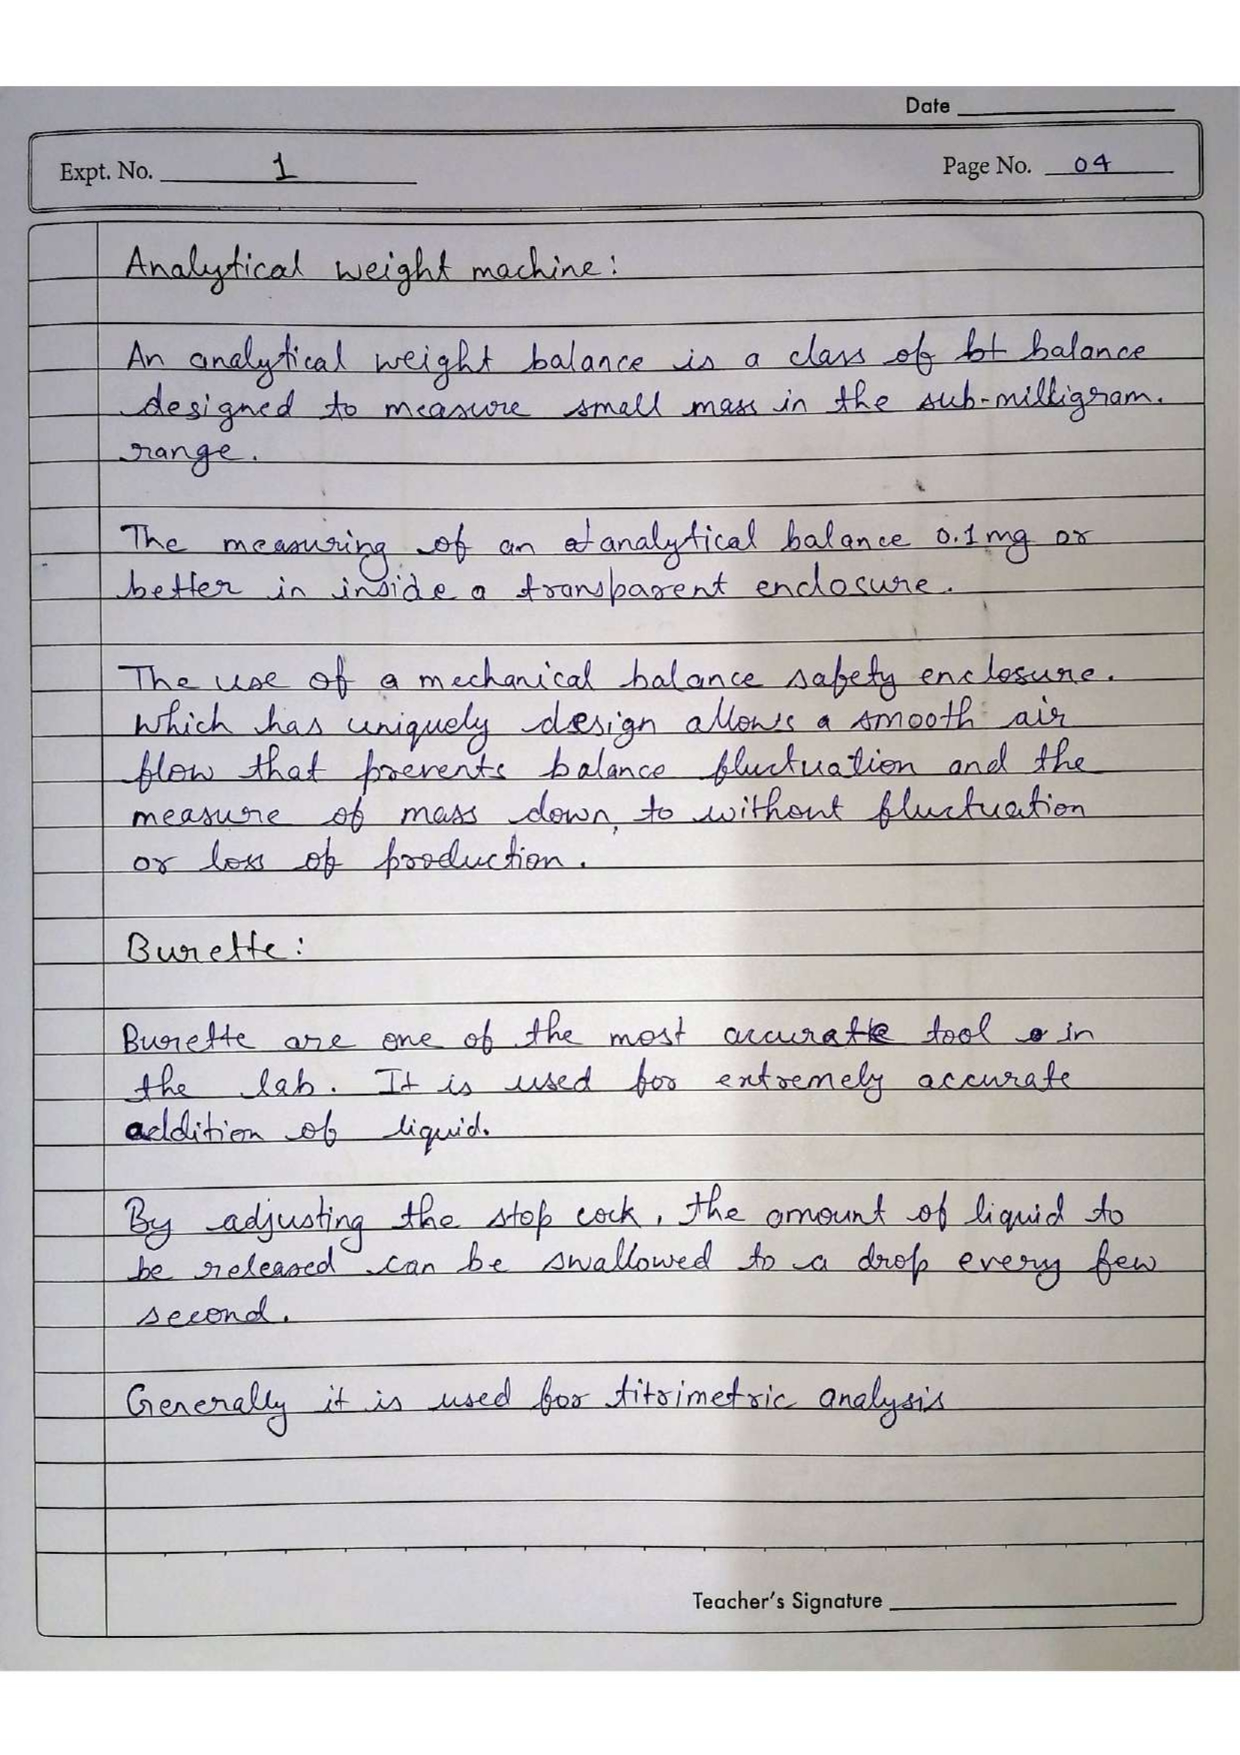 Date
Expt. No. 1
Page No. 04
Analytical weight machine:
An analytical weight balance is a class of bt balance
designed to measure small mass in the sub-milligram.
range.
The measuring of an at analytical balance 0.1 mg or
better in inside a transparent enclosure.
The use of a mechanical balance safety enclosure.
which has uniquely design allows a smooth air
flow that prevents balance fluctuation and the
measure of mass down, to without fluctuation
or loss of production.
Burette:
Burette are one of the most accurate tool in
the lab. It is used for extremely accurate
addition of liquid.
By adjusting the stop cock, the amount of liquid to
be released can be swallowed to a drop every few
second.
Generally it is used for titrimetric analysis
Teacher's Signature